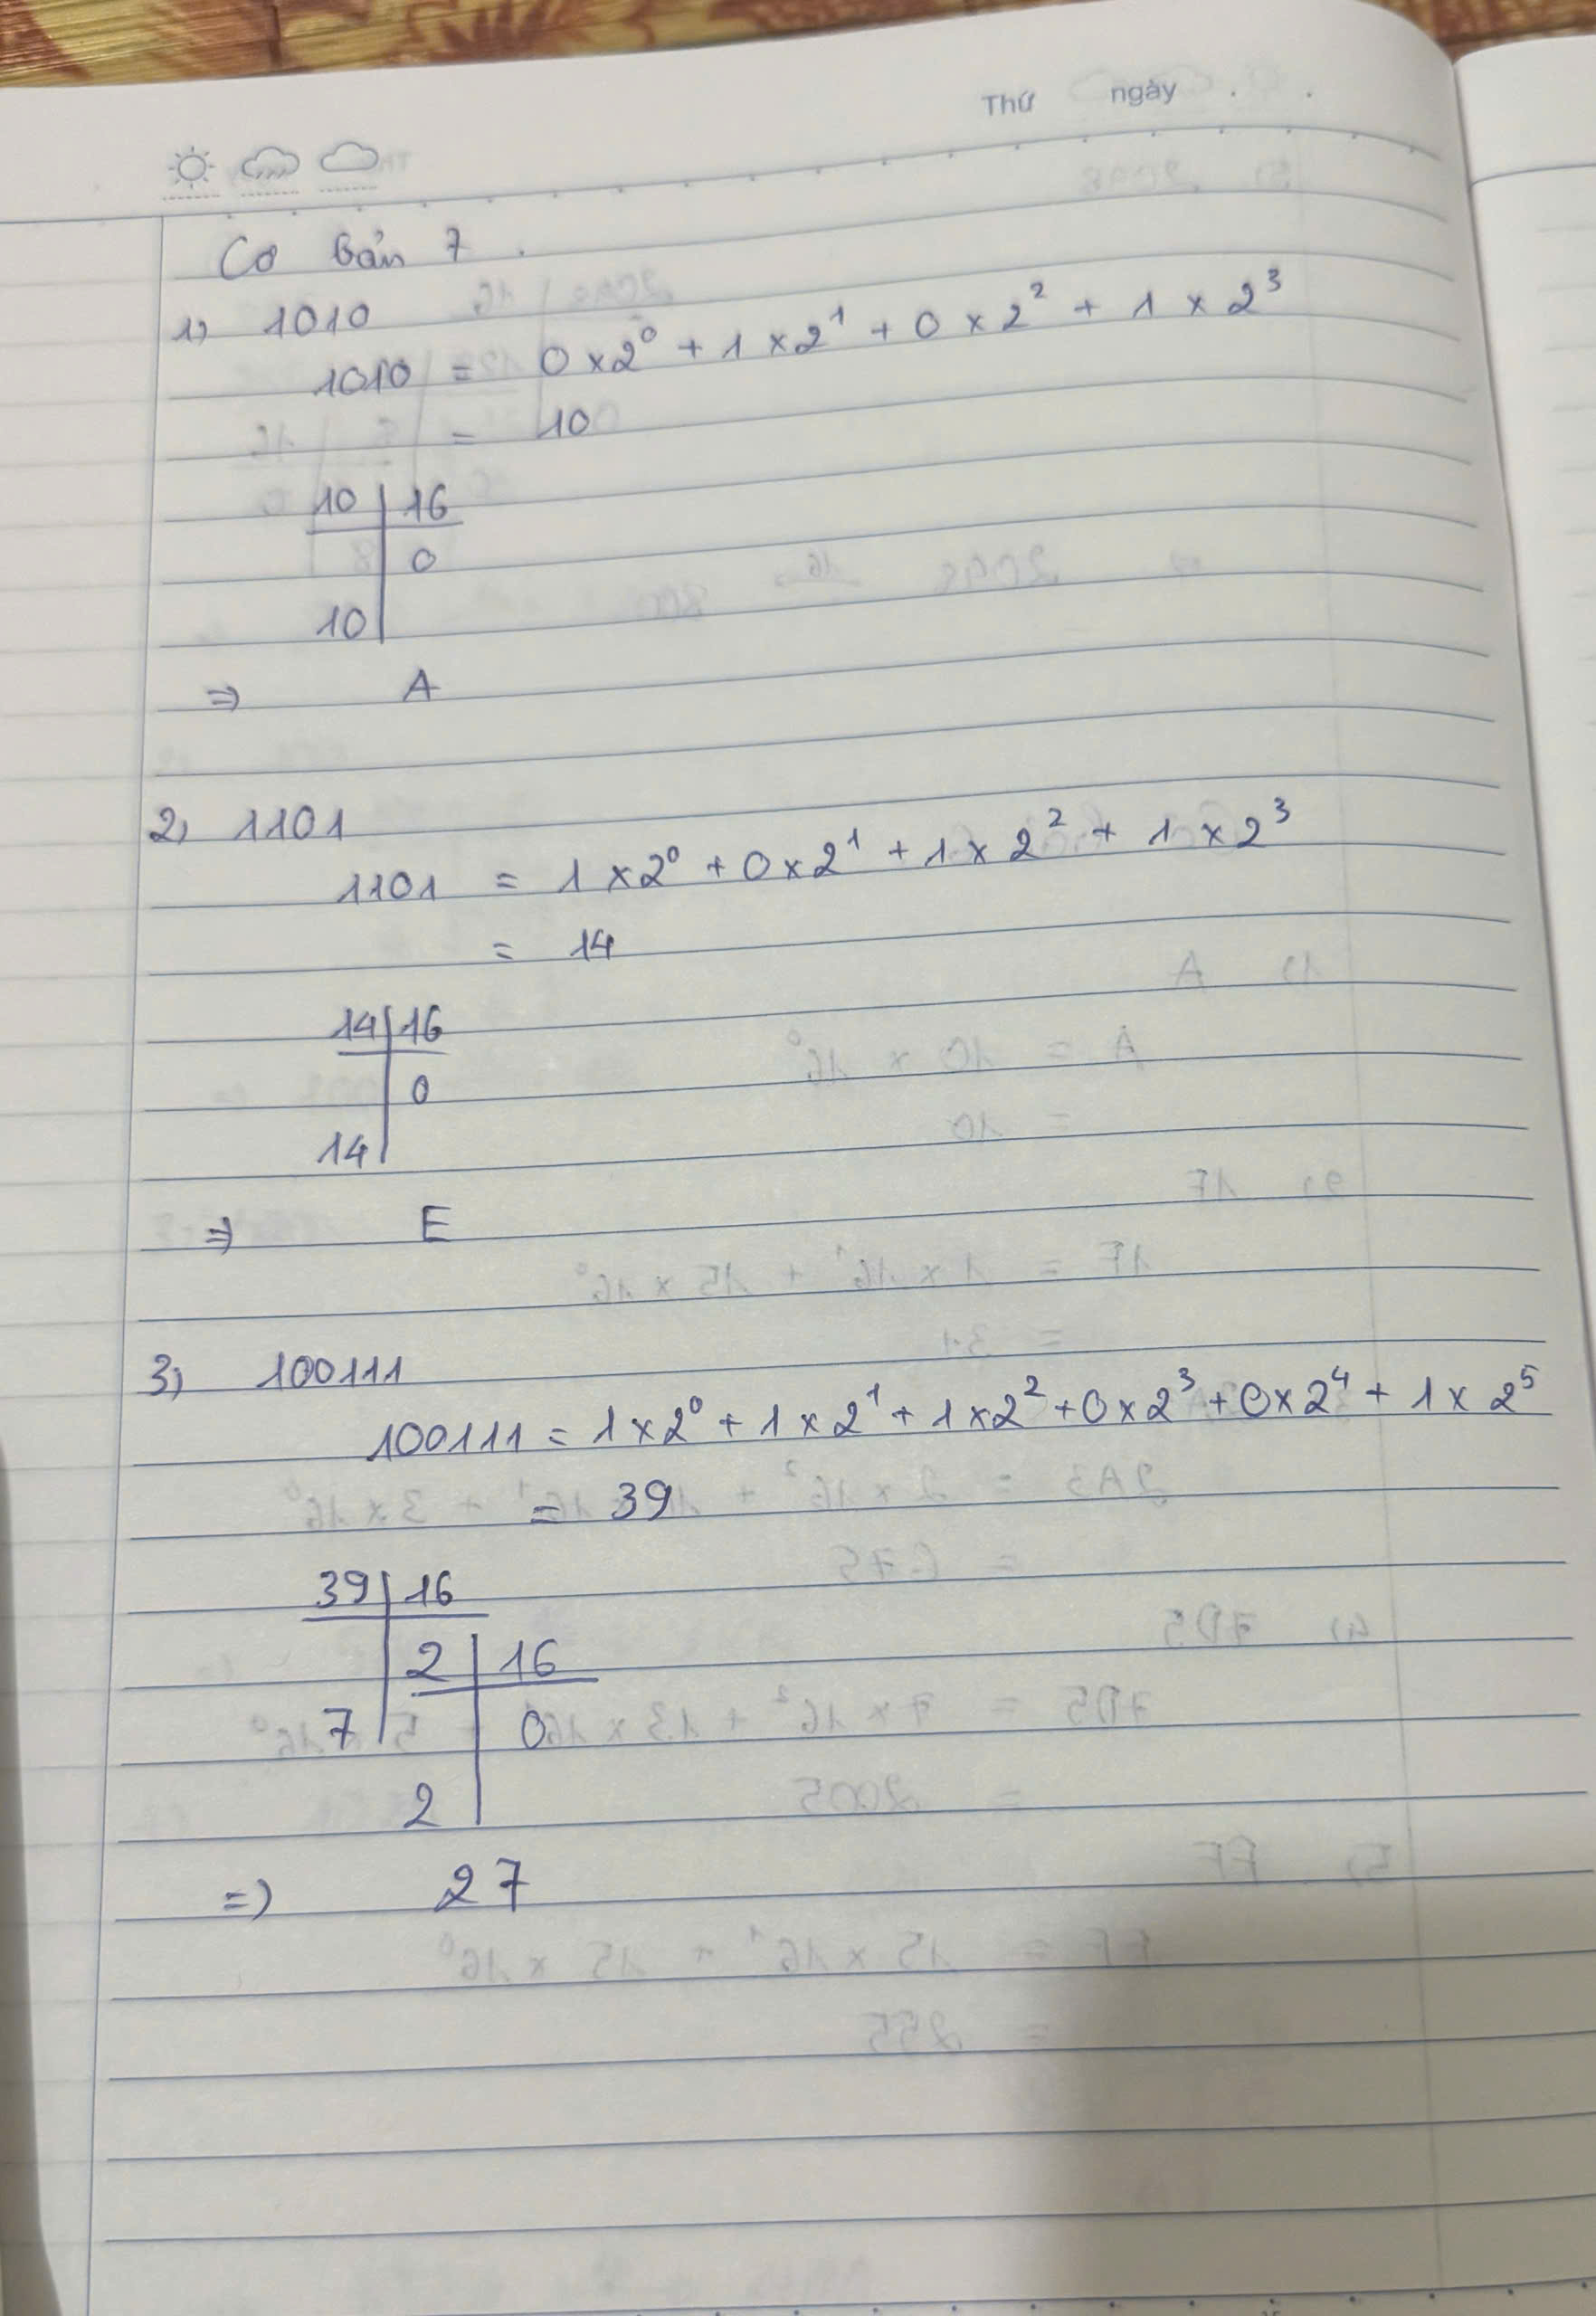 Thứ ngày . .
Cơ bản 7.
1) 1010
1010 = 0 x 2⁰ + 1 x 2¹ + 0 x 2² + 1 x 2³
= 10
10 | 16
0
10
⇒ A
2) 1101
1101 = 1 x 2⁰ + 0 x 2¹ + 1 x 2² + 1 x 2³
= 14
14 | 16
0
14
⇒ E
3) 100111
100111 = 1 x 2⁰ + 1 x 2¹ + 1 x 2² + 0 x 2³ + 0 x 2⁴ + 1 x 2⁵
= 39
39 | 16
2 | 16
7 0
2
=) 27